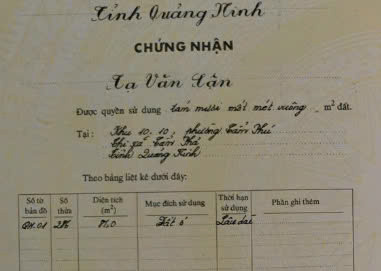 Tỉnh Quảng Ninh
CHỨNG NHẬN
Tạ Văn Cận
Được quyền sử dụng tám mươi mốt mét vuông m² đất.
Tại : Khu 10, 10, phường Cẩm Phú
Thị xã Cẩm Phả
Tỉnh Quảng Ninh
Theo bảng liệt kê dưới đây:
Số tờ bản đồ Số thửa Diện tích (m²) Mục đích sử dụng Thời hạn sử dụng Phần ghi thêm
QH.01 Đất ở Lâu dài